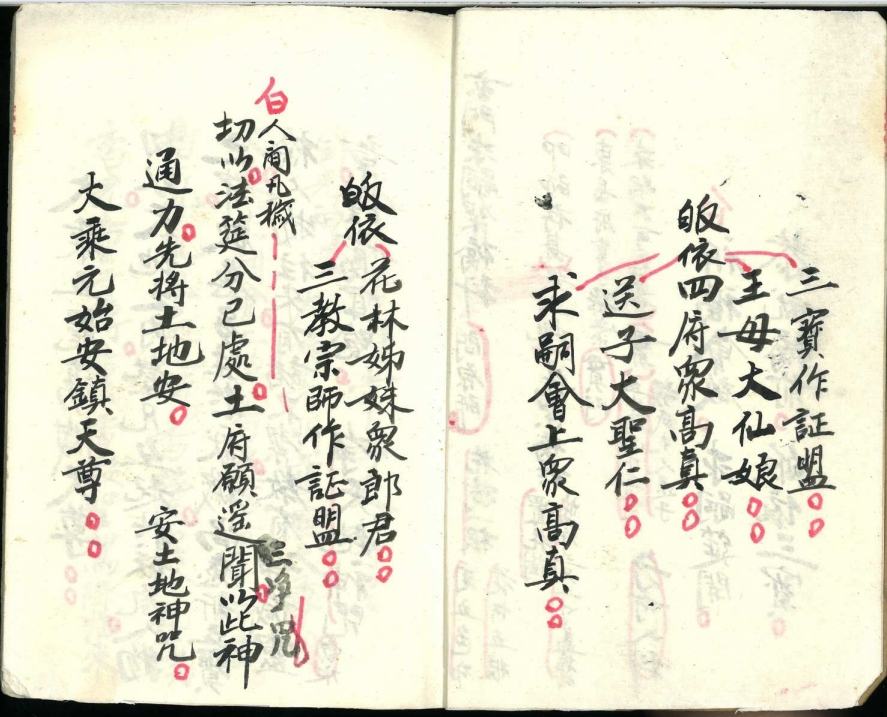 三寶作証盟
王母大仙娘
皈依四府眾高真
送子大聖仁
求嗣會上眾高真
皈依花林姊妹眾郎君
三教宗師作証盟
白人間凡穢 三净咒
切以法筵分已處土府願遥聞以此神
通力先將土地安 安土地神咒
大乘元始安鎮天尊